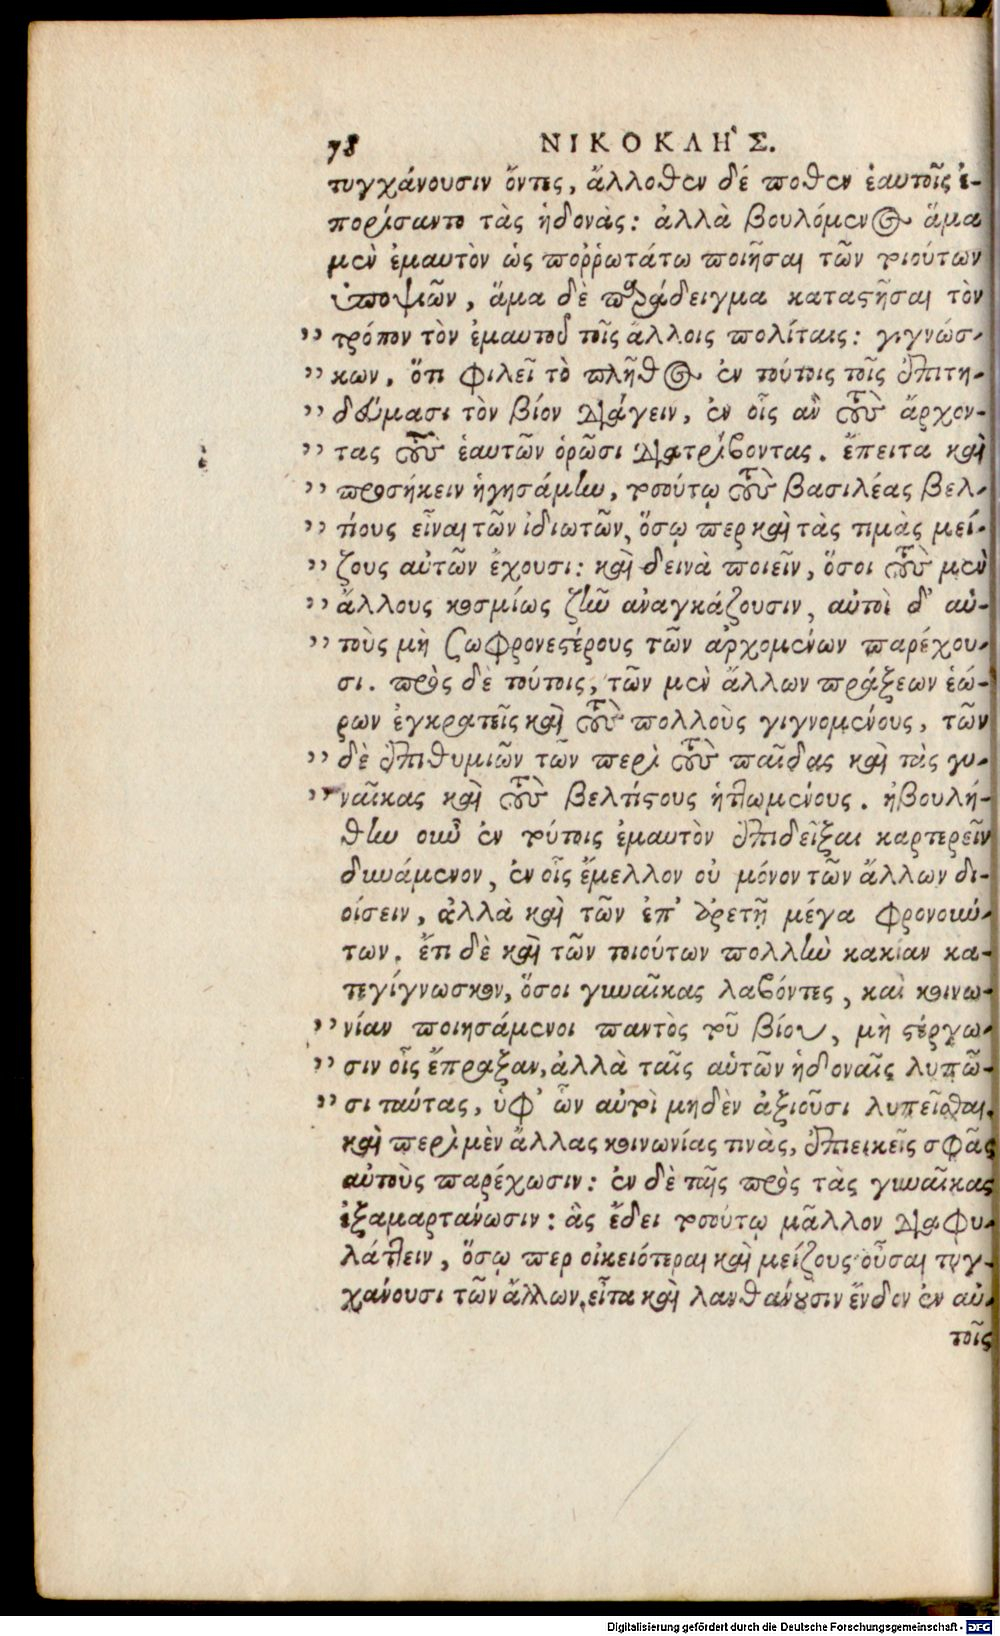 78 ΝΙΚΟΚΛΗ῀Σ.
τυγχάνουσιν ὄντες, ἄλλοθεν δέ ποθεν ἑαυτοῖς ἐ-
πορίσαντο τὰς ἡδονὰς: ἀλλὰ βουλόμενος ἅμα
μὲν ἐμαυτὸν ὡς ποῤῥωτάτω ποιῆσαι τῶν τοιούτων
ὑποψιῶν, ἅμα δὲ παράδειγμα καταστῆσαι τὸν
„ τρόπον τὸν ἐμαυτοῦ τοῖς ἄλλοις πολίταις: γιγνώσ-
„ κων, ὅτι φιλεῖ τὸ πλῆθος ἐν τούτοις τοῖς ἐπιτη-
„ δεύμασι τὸν βίον διάγειν, ἐν οἷς ἂν τοὺς ἄρχον-
„ τας τοὺς ἑαυτῶν ὁρῶσι διατρίβοντας. ἔπειτα καὶ
„ προσήκειν ἡγησάμην, τοσούτῳ τοὺς βασιλέας βελ-
„ τίους εἶναι τῶν ἰδιωτῶν, ὅσῳ περ καὶ τὰς τιμὰς μεί-
„ ζους αὐτῶν ἔχουσι: καὶ δεινὰ ποιεῖν, ὅσοι τοὺς μὲν
„ ἄλλους κοσμίως ζῆν αναγκάζουσιν, αὐτοὶ δ' αὑ-
„ τοὺς μὴ σωφρονεστέρους τῶν ἀρχομένων παρέχου-
σι. πρὸς δὲ τούτοις, τῶν μὲν ἄλλων πράξεων ἑώ-
ρων ἐγκρατεῖς καὶ τοὺς πολλοὺς γιγνομένους, τῶν
„ δὲ ἐπιθυμιῶν τῶν περὶ τοὺς παῖδας καὶ τὰς γυ-
„ ναῖκας καὶ τοὺς βελτίστους ἡττωμένους. ἠβουλή-
θην οὖν ἐν τούτοις ἐμαυτὸν ἐπιδεῖξαι καρτερεῖν
δυνάμενον, ἐν οἷς ἔμελλον οὐ μόνον τῶν ἄλλων δι-
οίσειν, ἀλλὰ καὶ τῶν ἐπ' ἀρετῇ μέγα φρονούν-
των. ἔτι δὲ καὶ τῶν τοιούτων πολλὴν κακίαν κα-
τεγίγνωσκον, ὅσοι γυναῖκας λαβόντες, καὶ κοινω-
„ νίαν ποιησάμενοι παντὸς τοῦ βίου, μὴ στέργω-
„ σιν οἷς ἔπραξαν, ἀλλὰ ταῖς αὑτῶν ἡδοναῖς λυπῶ-
„ σι ταύτας, ὑφ' ὧν αὐτοὶ μηδὲν ἀξιοῦσι λυπεῖσθαι.
καὶ περὶ μὲν ἄλλας κοινωνίας τινὰς, ἐπιεικεῖς σφᾶς
αὐτοὺς παρέχωσιν: ἐν δὲ ταῖς πρὸς τὰς γυναῖκας
ἐξαμαρτάνωσιν: ἃς ἔδει τοσούτῳ μᾶλλον διαφυ-
λάττειν, ὅσῳ περ οἰκειότεραι καὶ μείζους οὖσαι τυγ-
χάνουσι τῶν ἄλλων. εἶτα καὶ λανθάνουσιν ἔνδον ἐν αὐ-
τοῖς
Digitalisierung gefördert durch die Deutsche Forschungsgemeinschaft - DFG